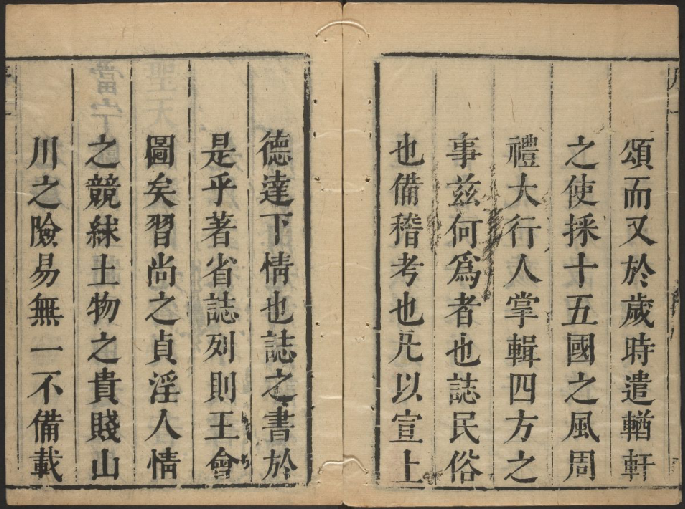 頌而又於歲時遣輶軒
之使採十五國之風周
禮大行人掌輯四方之
事茲何爲者也誌民俗
也備稽考也凡以宣上
德達下情也誌之書於
是乎著省誌列則王會
圖矣習尚之貞淫人情
之競絿土物之貴賤山
川之險易無一不備載